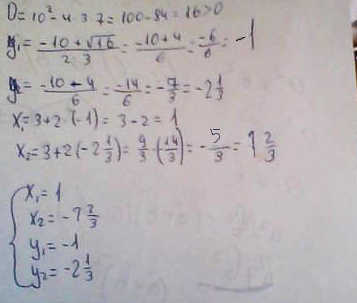 D = 10² - 4 · 3 · 7 = 100 - 84 = 16 > 0
y₁ = (-10 + √16)/(2 · 3) = (-10 + 4)/6 = -6/6 = -1
y₂ = (-10 - 4)/6 = -14/6 = -7/3 = -2 1/3
x₁ = 3 + 2 · (-1) = 3 - 2 = 1
x₂ = 3 + 2 (-2 1/3) = 9/3 - (14/3) = -5/3 = 1 2/3
x₁ = 1
x₂ = -1 2/3
y₁ = -1
y₂ = -2 1/3